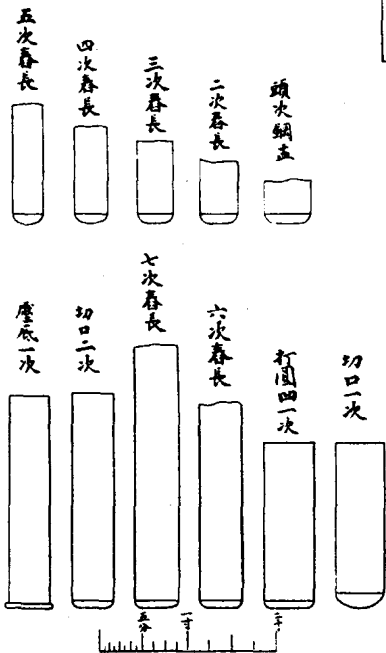 頭次銅盂
二次舂長
三次舂長
四次舂長
五次舂長
切口一次
打圓凹一次
六次舂長
七次舂長
切口二次
壓底一次
五分
一寸
二寸